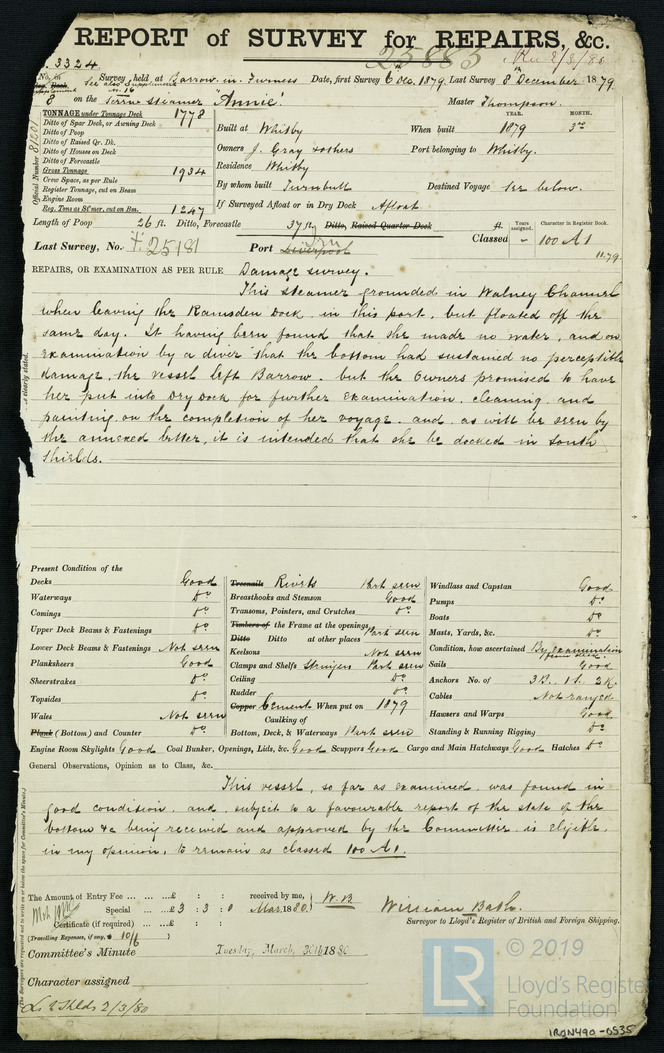 REPORT of SURVEY for REPAIRS, &c.
25885 Rec 2/3/80
No. 3324
No. in Survey held at Barrow-in-Furness Date, first Survey 6th Dec. 1879. Last Survey 8th December 1879.
See also Supplement
No. 16
8 on the Screw steamer "Annie". Master Thompson.
TONNAGE under Tonnage Deck 1778
Ditto of Spar Deck, or Awning Deck
Ditto of Poop
Ditto of Raised Qr. Dk.
Ditto of Houses on Deck
Ditto of Forecastle
Gross Tonnage 1934
Crew Space, as per Rule
Register Tonnage, cut on Beam
Engine Room
Reg. Tons as St'mer, cut on Bm. 1247
Official Number
YEAR. MONTH.
Built at Whitby When built 1879 3mo
Owners J. Gray & others Port belonging to Whitby.
Residence Whitby
By whom built Turnbull Destined Voyage See below.
If Surveyed Afloat or in Dry Dock Afloat
Length of Poop 26 ft. Ditto, Forecastle 37 ft. Ditto, Raised Quarter Deck ft.
Years assigned. Character in Register Book.
Last Survey, No. 25181 Port Liverpool Classed - 100 A1
11.79.
REPAIRS, OR EXAMINATION AS PER RULE Damage survey.
This steamer grounded in Walney Channel
when leaving the Ramsden Dock, in this port, but floated off the
same day. It having been found that she made no water, and on
examination by a diver that the bottom had sustained no perceptible
damage, the vessel left Barrow, but the Owners promised to have
her put into Dry Dock for further examination, cleaning, and
painting on the completion of her voyage, and, as will be seen by
the annexed letter, it is intended that she be docked in South
Shields.
clearly stated.
Present Condition of the
Decks Good
Waterways Do
Comings Do
Upper Deck Beams & Fastenings Do
Lower Deck Beams & Fastenings Not seen
Planksheers Good
Sheerstrakes Do
Topsides Do
Wales Not seen
Plank (Bottom) and Counter Do
Treenails Rivets Part seen
Breasthooks and Stemson Good
Transoms, Pointers, and Crutches Do
Timbers of the Frame at the openings
Ditto Ditto at other places Part seen
Keelsons Not seen
Clamps and Shelfs Stringers Part seen
Ceiling Do
Rudder Do
Copper Cement When put on 1879
Caulking of
Bottom, Deck, & Waterways Part seen
Windlass and Capstan Good
Pumps Do
Boats Do
Masts, Yards, &c. Do
Condition, how ascertained By examination
from deck
Sails Good
Anchors No. of 3B. 1S. 2K.
Cables Not ranged
Hawsers and Warps Good
Standing & Running Rigging Do
Engine Room Skylights Good Coal Bunker, Openings, Lids, &c. Good Scuppers Good Cargo and Main Hatchways Good Hatches Do
General Observations, Opinion as to Class, &c.
This vessel, so far as examined, was found in
good condition, and, subject to a favourable report of the state of the
bottom &c being received and approved by the Committee, is eligible,
in my opinion, to remain as classed 100 A1.
The Amount of Entry Fee ... ...£ : : received by me,
Special ... ...£ 3 : 3 : 0 Mar. 1880. W.B
Certificate (if required) ...£ : :
(Travelling Expenses, if any, £ 10/6 )
William Bath.
Surveyor to Lloyd's Register of British and Foreign Shipping.
Committee's Minute Tuesday, March, 30th 1880
Character assigned
The Surveyors are requested not to write on or below the space for Committee's Minute.
2/3/80
© 2019
LR
Lloyd's Register
Foundation
IRON490-0535